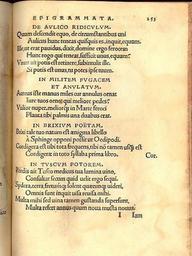 EPIGRAMMATA. 255
DE AULICO RIDICULUM.
Quum descendit equo, de circumstantibus uni
Aulicus hunc teneas quisquis es, inquit, equum.
Ille, ut erat pauidus, dixit, domine ergo ferocem
Hunc rogo qui teneat, sufficit unus, equum?
Unus ait potis est retinere, subintulit ille.
Si potis est unus, tu potes ipse tuum.
IN MILITEM FUGACEM
ET ANULATUM.
Aureus iste manus miles cur annulus ornat
Iure tuos ornet qui meliore pedes?
Utilior nuper, meliorque in Marte feroci
Planta tibi palmis una duabus erat.
IN BRIXIUM POETAM.
Brixi tale tuo natum est ænigma libello
Sphinge opponi posset ut Oedipodi.
Cordigera est tibi tota frequens, tibi nō tamen usq est
Cordigeræ in toto syllaba prima libro. Cor.
IN TUSCUM POTOREM.
Perdis ait Tusco medicus tua lumina uino,
Consultat secum quid uelit ergo sequi.
Sydera, terra, fretumq; solent quæcunq; uideri,
Omnia sunt, inquit, uisa duobus
Multa mihi sed uina tamen gustanda supersunt,
Multa refert annus quum noua musta nouus.
I Iam